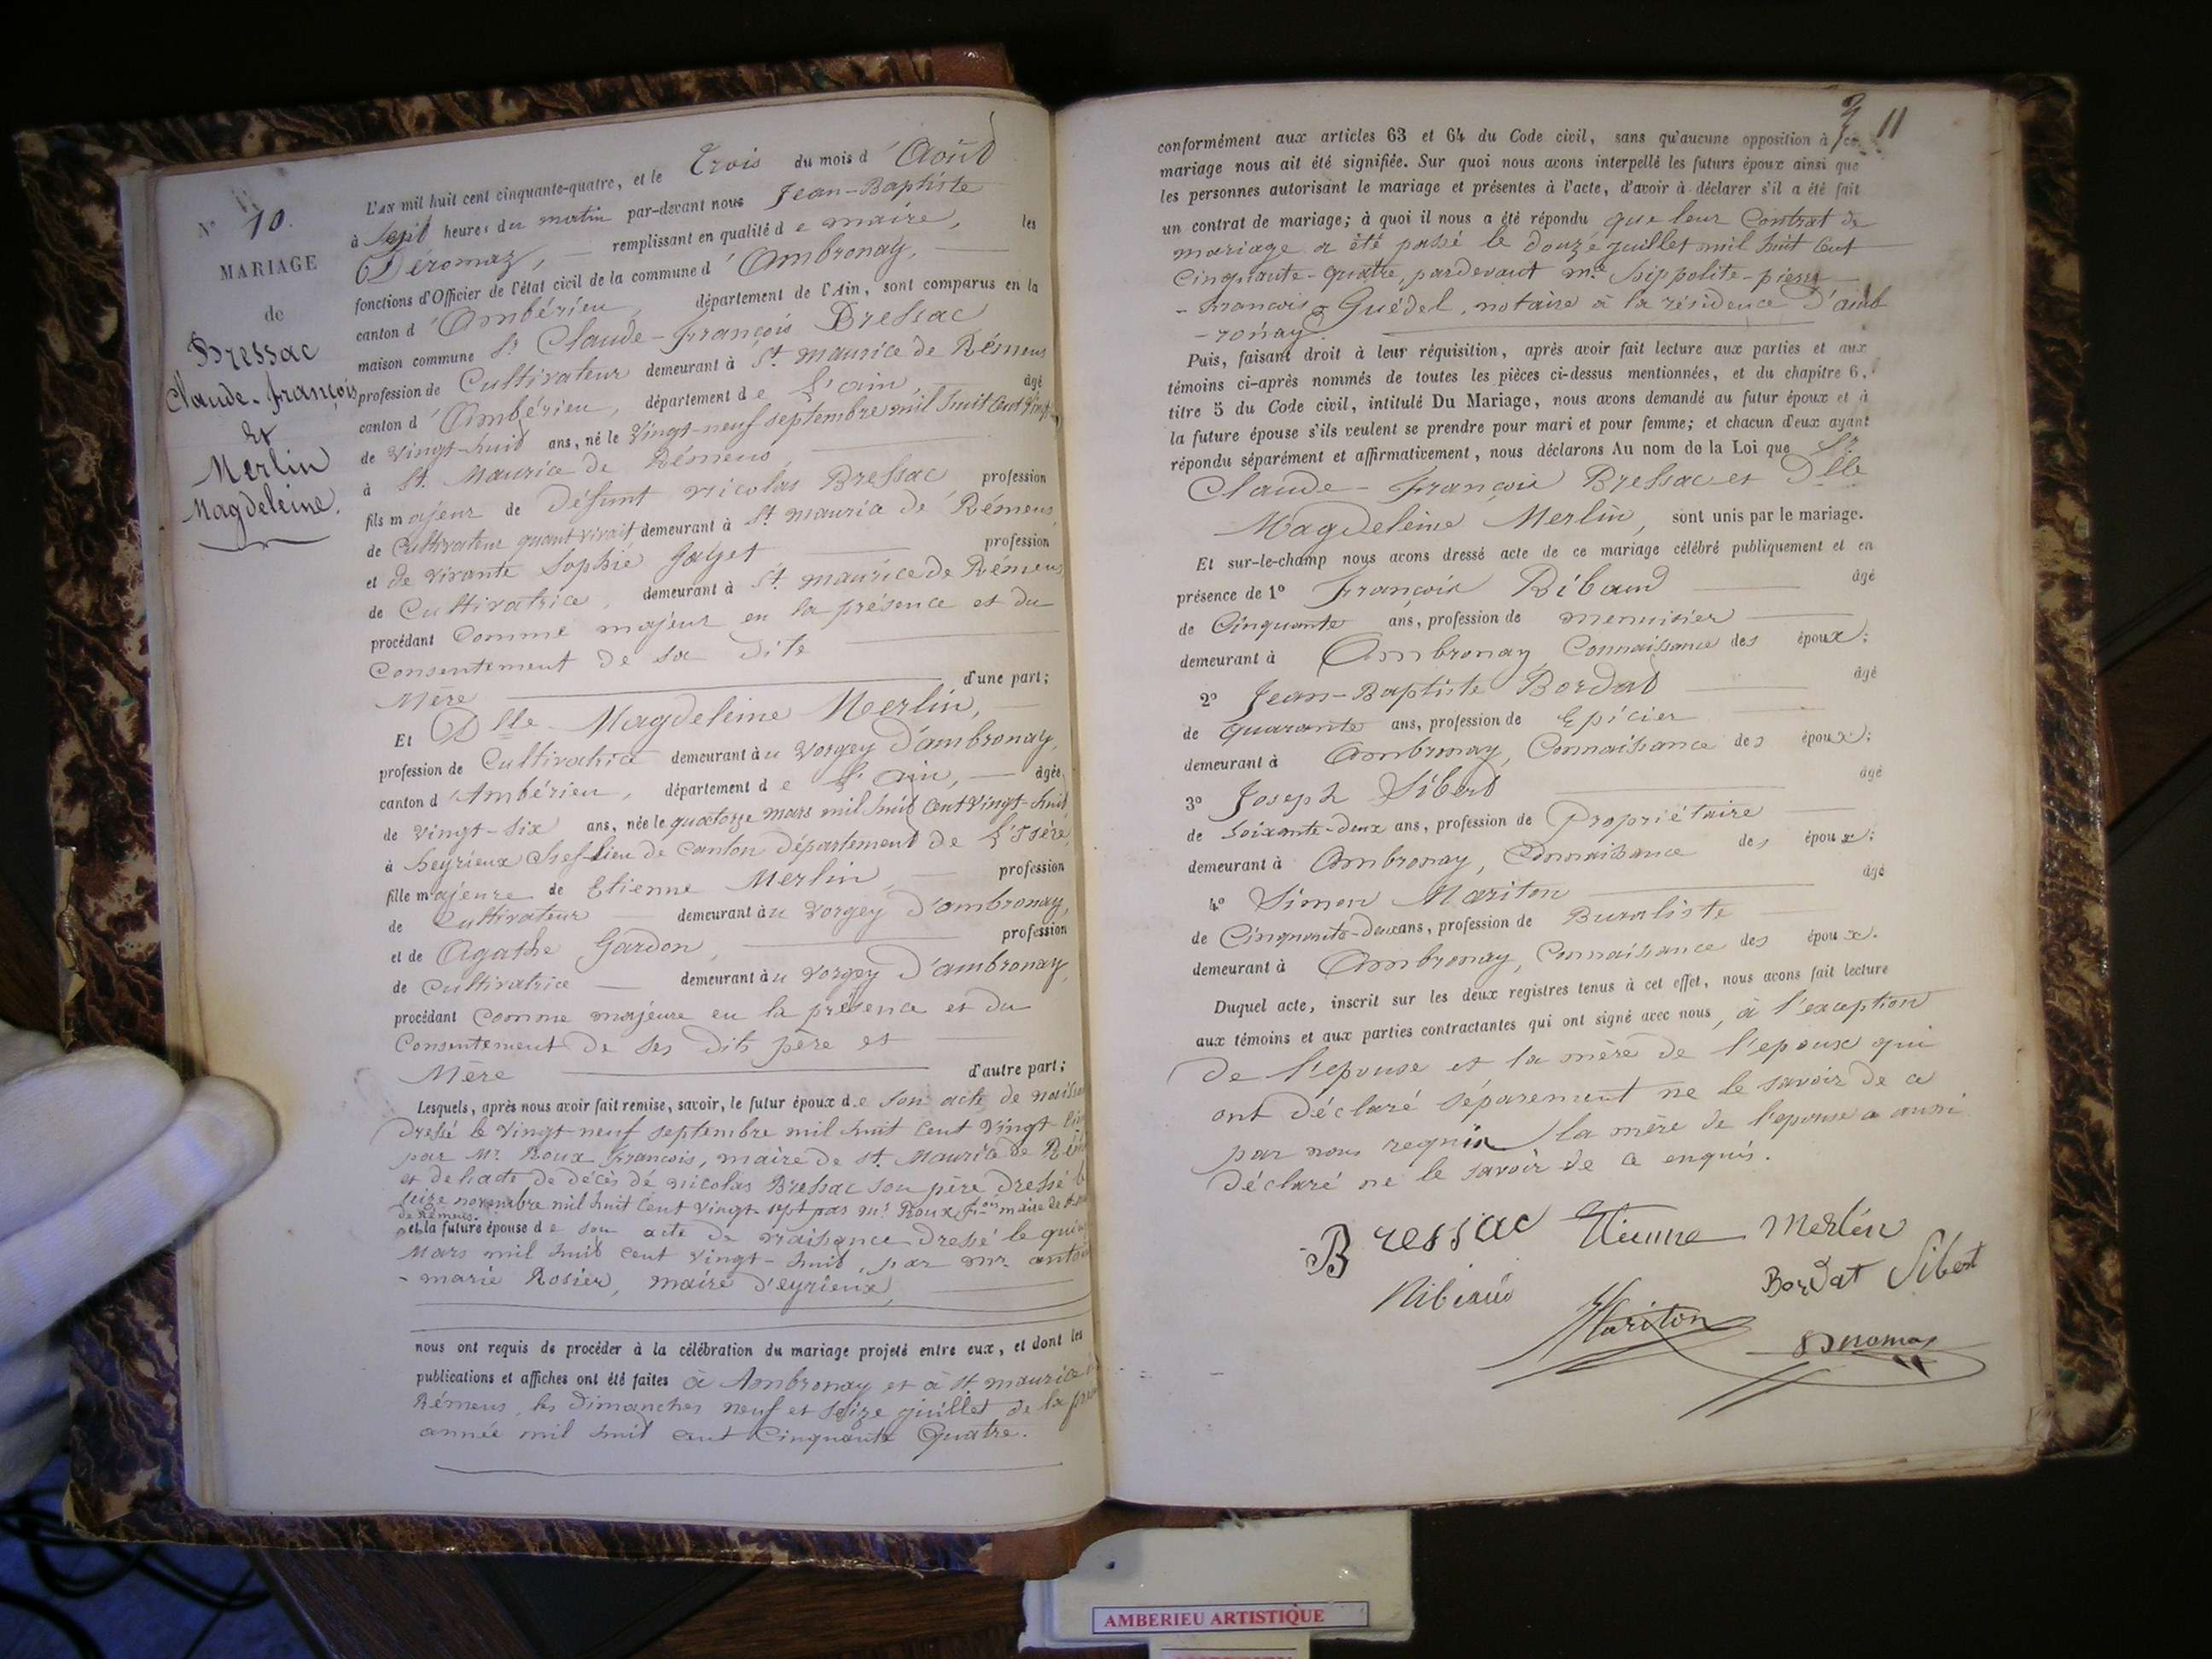 N° 10.
MARIAGE
de
Bressac
Claude-françois
Et
Merlin
Magdeleine.
L'AN mil huit cent cinquante-quatre, et le Trois du mois d'Août
à Sept heures du matin par-devant nous Jean-Baptiste
Deromaz, remplissant en qualité de maire, les
fonctions d'Officier de l'état civil de la commune d'Ambronay,
canton d'Ambérieu, département de l'Ain, sont comparus en la
maison commune Sr Claude-François Bressac
profession de Cultivateur demeurant à St. maurice de Rémens
canton d'Ambérieu, département de L'ain, âgé
de Vingt-huit ans, né le Vingt-neuf septembre mil huit Cent Vingt-
à St. Maurice de Rémens,
fils majeur de Défunt Nicolas Bressac profession
de Cultivateur quant vivait demeurant à St. maurice de Rémens,
et de vivante Sophie Jayet profession
de Cultivatrice, demeurant à St. maurice de Rémens
procédant Comme majeur en la présence et du
Consentement de sa dite
Mère d'une part;
Et Dlle Magdeleine Merlin,
profession de Cultivatrice demeurant au Vorgey d'ambronay,
canton d'Ambérieu, département de L'ain, âgée
de Vingt-six ans, née le quatorze mars mil huit Cent Vingt-huit
à heyrieux Chef-lieu de Canton département de L'Isère,
fille majeure de Etienne Merlin, profession
de Cultivateur demeurant au Vorgey d'ambronay,
et de Agathe Gardon, profession
de Cultivatrice demeurant au Vorgey d'ambronay,
procédant Comme majeure en la présence et du
Consentement de ses dits père et
Mère d'autre part;
Lesquels, après nous avoir fait remise, savoir, le futur époux de son acte de
Dressé le Vingt-neuf septembre mil huit Cent Vingt
par Mr. Roux François, maire de St. Maurice de
et de l'acte de décès de Nicolas Bressac son père dressé le
seize novembre mil huit Cent Vingt-sept par Mr. Roux fois maire de St
de Rémens.
et la future épouse de son acte de naissance Dressé le
Mars mil huit cent vingt-huit, par mr.
-marie Rosier, maire d'eyrieux,
nous ont requis de procéder à la célébration du mariage projeté entre eux, et dont les
publications et affiches ont été faites à Ambronay et à St. maurice
Rémens, les Dimanches neuf et seize juillet de la
année mil huit cent Cinquante Quatre.
11
conformément aux articles 63 et 64 du Code civil, sans qu'aucune opposition à ce
mariage nous ait été signifiée. Sur quoi nous avons interpellé les futurs époux ainsi que
les personnes autorisant le mariage et présentes à l'acte, d'avoir à déclarer s'il a été fait
un contrat de mariage; à quoi il nous a été répondu que leur Contrat de
mariage a été passé le douze juillet mil huit Cent
Cinquante-quatre, pardevant me. hippolite-pierre
-François Guédel, notaire à la résidence d'amb
-ronay.
Puis, faisant droit à leur réquisition, après avoir fait lecture aux parties et aux
témoins ci-après nommés de toutes les pièces ci-dessus mentionnées, et du chapitre 6,
titre 5 du Code civil, intitulé Du Mariage, nous avons demandé au futur époux et à
la future épouse s'ils veulent se prendre pour mari et pour femme; et chacun d'eux ayant
répondu séparément et affirmativement, nous déclarons Au nom de la Loi que Sr.
Claude-François Bressac et Dlle
Magdeleine Merlin, sont unis par le mariage.
Et sur-le-champ nous avons dressé acte de ce mariage célébré publiquement et en
présence de 1° François Ribaud âgé
de Cinquante ans, profession de menuisier
demeurant à Ambronay Connaissance des époux;
2° Jean-Baptiste Bordat âgé
de quarante ans, profession de Epicier
demeurant à Ambronay, Connaissance des époux;
3° Joseph Sibert âgé
de soixante-deux ans, profession de Propriétaire
demeurant à Ambronay, Connaissance des époux;
4° Simon Mariton âgé
de Cinquante-deux ans, profession de Buraliste
demeurant à Ambronay, Connaissance des époux.
Duquel acte, inscrit sur les deux registres tenus à cet effet, nous avons fait lecture
aux témoins et aux parties contractantes qui ont signé avec nous, à l'exception
de l'epouse et la mère de l'epoux qui
ont déclaré séparement ne le savoir de ce
par nous requis la mère de l'epouse a aussi
déclaré ne le savoir de ce enquis.
Bressac Etienne Merlin
Ribaud Bordat Sibert
Mariton Deromaz
AMBERIEU ARTISTIQUE